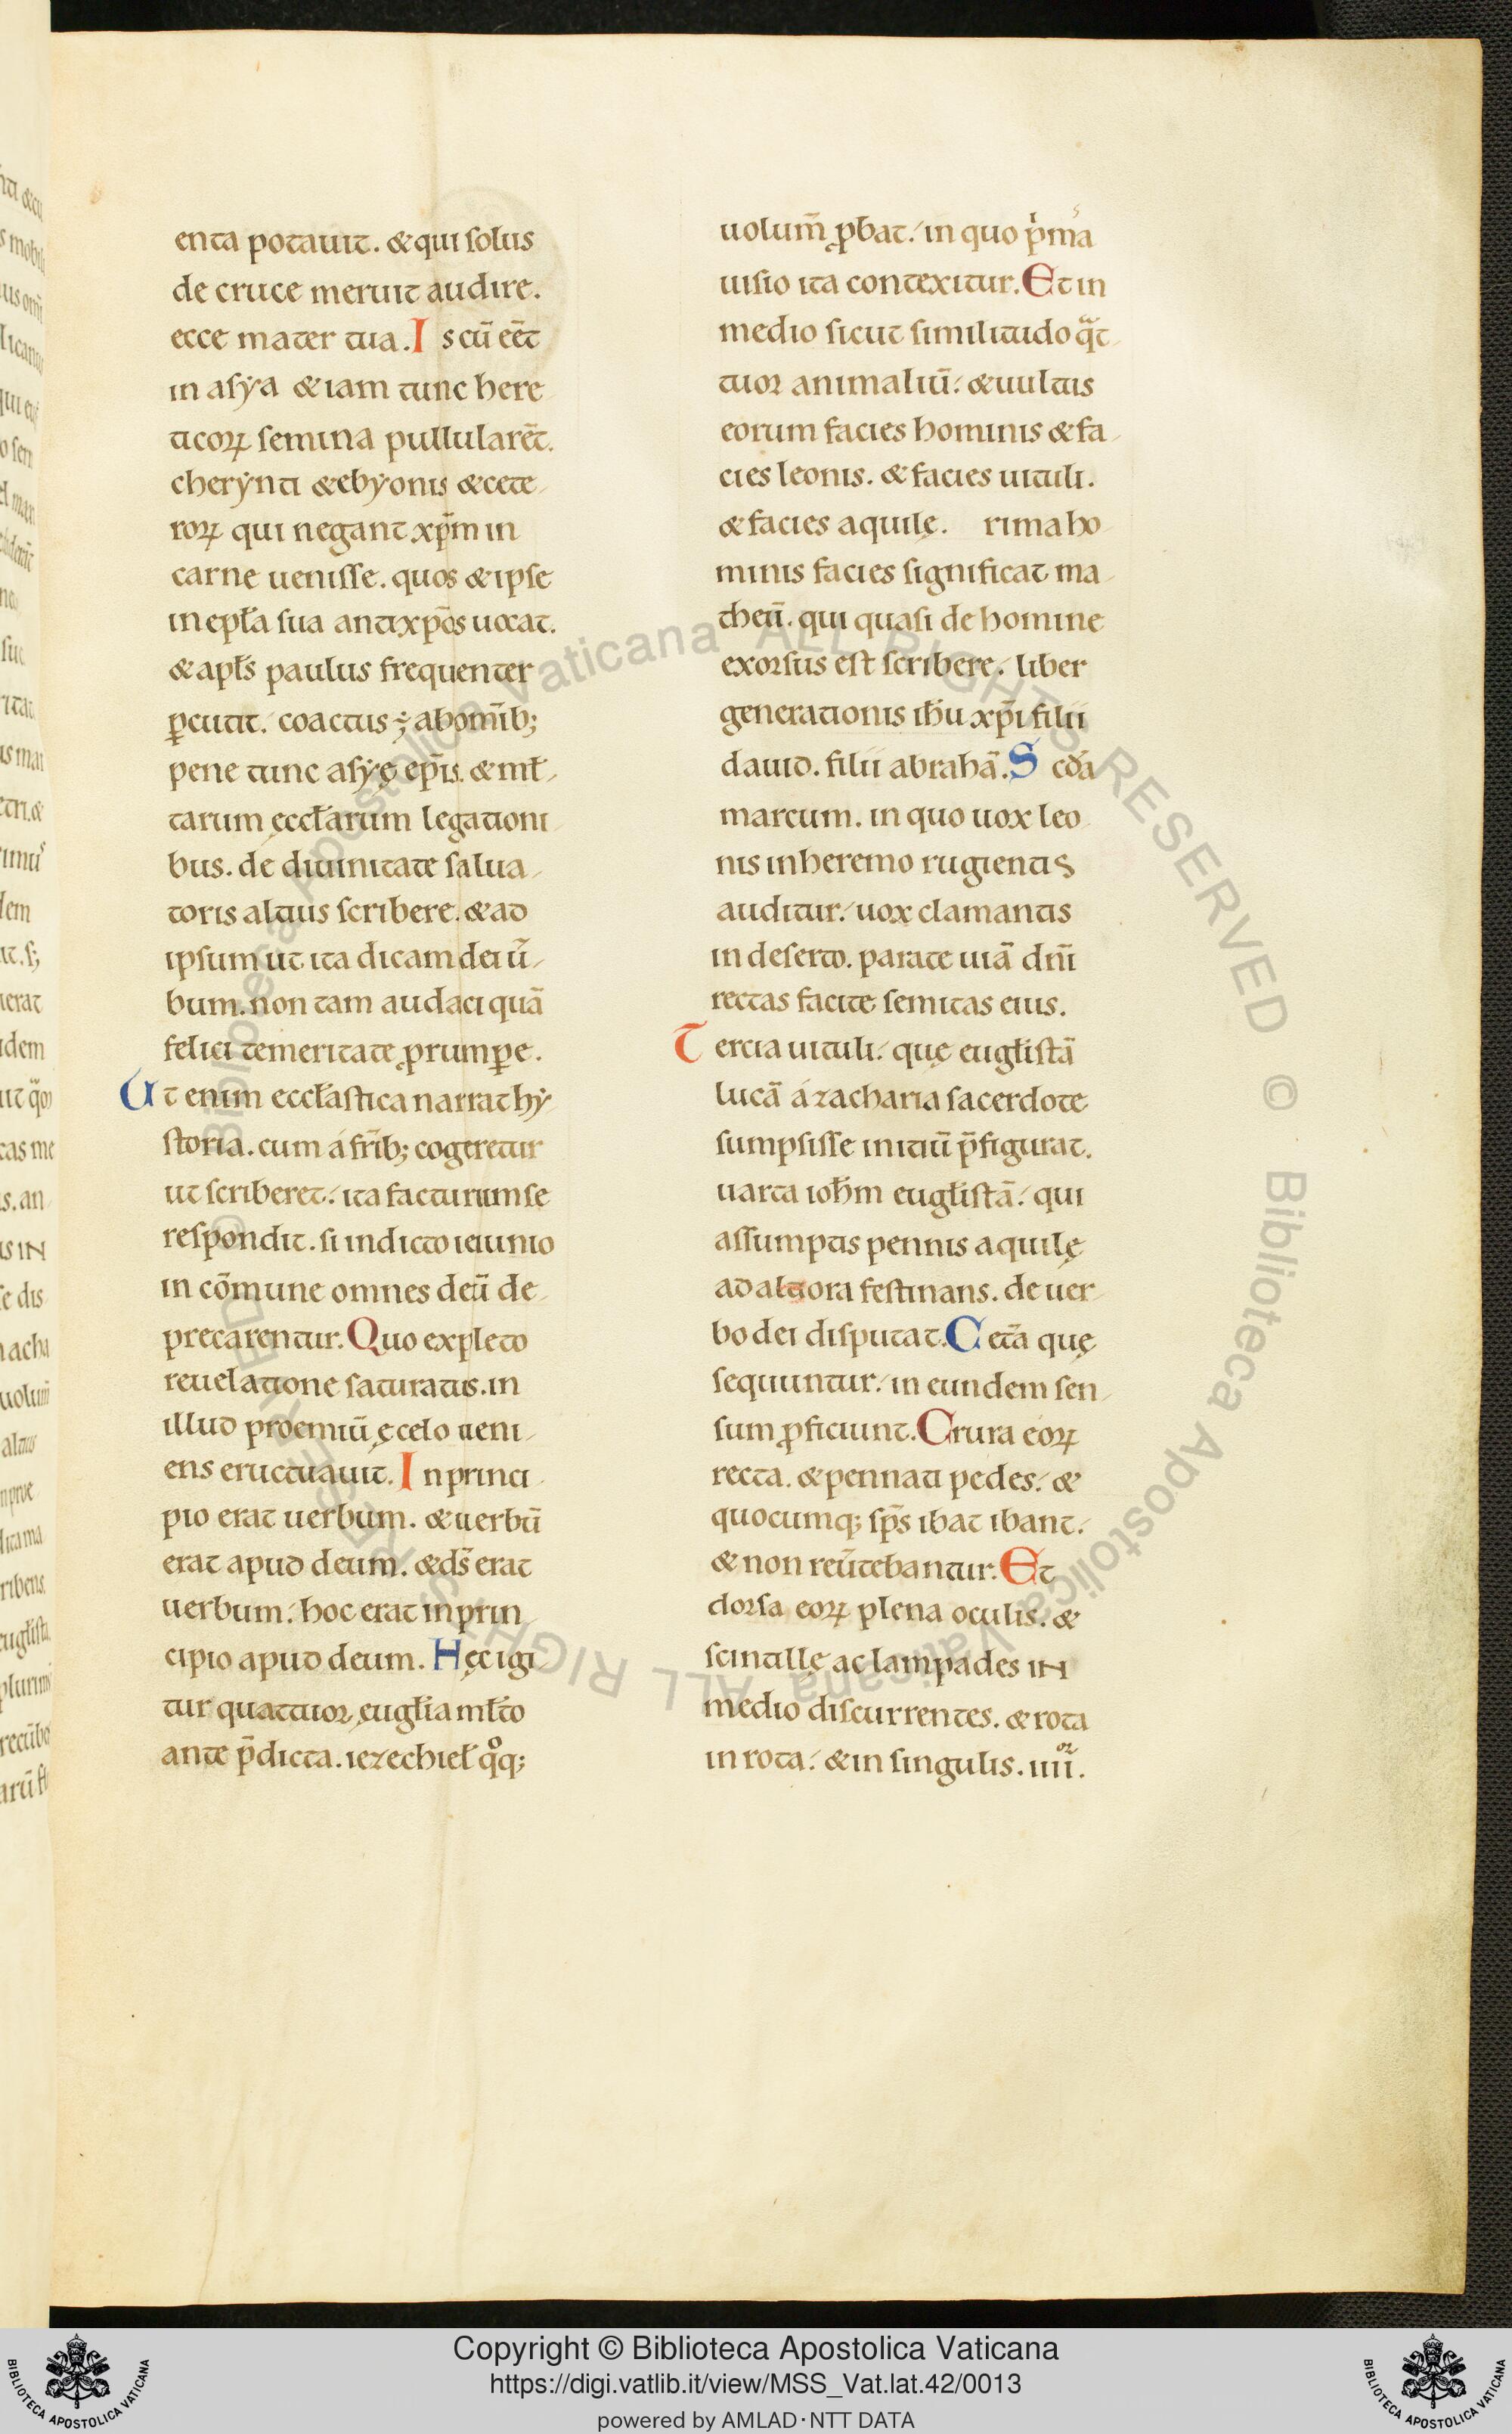 enta potauit. &qui solus
de cruce meruit audire.
ecce mater tua. Is cū eēt
in asẏa &iam tunc here
ticoꝝ semina pullularēt.
cherẏnti &ebẏonis &cete
roꝝ qui negant xp̄m in
carne uenisse. quos &ipse
in epła sua antixpōs uocat.
&apłs paulus frequenter
ꝑcutit. coactus ÷ abomīb;
pene tunc asẏę epīs. &mł
tarum ęccłarum legationi
bus. de diuinitate salua
toris altius scribere. &ad
ipsum ut ita dicam dei ū
bum. non tam audaci quā
felici temeritate ꝓrumꝑe.
Ut enim eccłastica narrat hẏ
storia. cum á frīb; cogeretur
ut scriberet. ita facturum se
respondit. si indicto ieiunio
in cōmune omnes deū de
precarentur. Quo expleto
reuelatione saturatus. in
illud proemiū ę celo ueni
ens eructuauit. In princi
pio erat uerbum. &uerbū
erat apud deum. &ds̄ erat
uerbum. hoc erat in prin
cipio apud deum. Hęc igi
tur quattuor euglia młto
ante p̄dicta. iezechieł qͦq;
uolum̄ ꝓbat. in quo pͥma
uisio ita contexitur. Et in
medio sicut similitudo qͣt
tuor animaliū. &uultus
eorum facies hominis &fa
cies leonis. &facies uituli.
&facies aquilę. rima ho
minis facies significat ma
theū. qui quasi de homine
exorsus est scribere. liber
generationis ihū xpī filii
dauid. filii abrahā. Scda
marcum. in quo uox leo
nis inheremo rugientis
auditur. uox clamantis
in deserto. parate uiā dn̄i
rectas facite semitas eius.
Tercia uituli. quę eugłistā
lucā á zacharia sacerdote
sumpsisse initiū p̄figurat.
uarta ioh̄m eugłistā. qui
assumptis pennis aquilę
ad altiora festinans. de uer
bo dei disputat. Cetā quę
sequuntur. in eundem sen
sum ꝓficiunt. Crura eoꝝ
recta. &pennati pedes. &
quocumq; sp̄s ibat ibant.
&non reūtebantur. Et
dorsa eoꝝ plena oculis. &
scintillę ac lampades in
medio discurrentes. &rota
in rota. &in singulis. iiii͛or.
© Biblioteca Apostolica Vaticana ALL RIGHTS RESERVED © Biblioteca Apostolica Vaticana ALL RIGHTS RESERVED
Copyright © Biblioteca Apostolica Vaticana
https://digi.vatlib.it/view/MSS_Vat.lat.42/0013
powered by AMLAD·NTT DATA
BIBLIOTECA APOSTOLICA VATICANA
BIBLIOTECA APOSTOLICA VATICANA